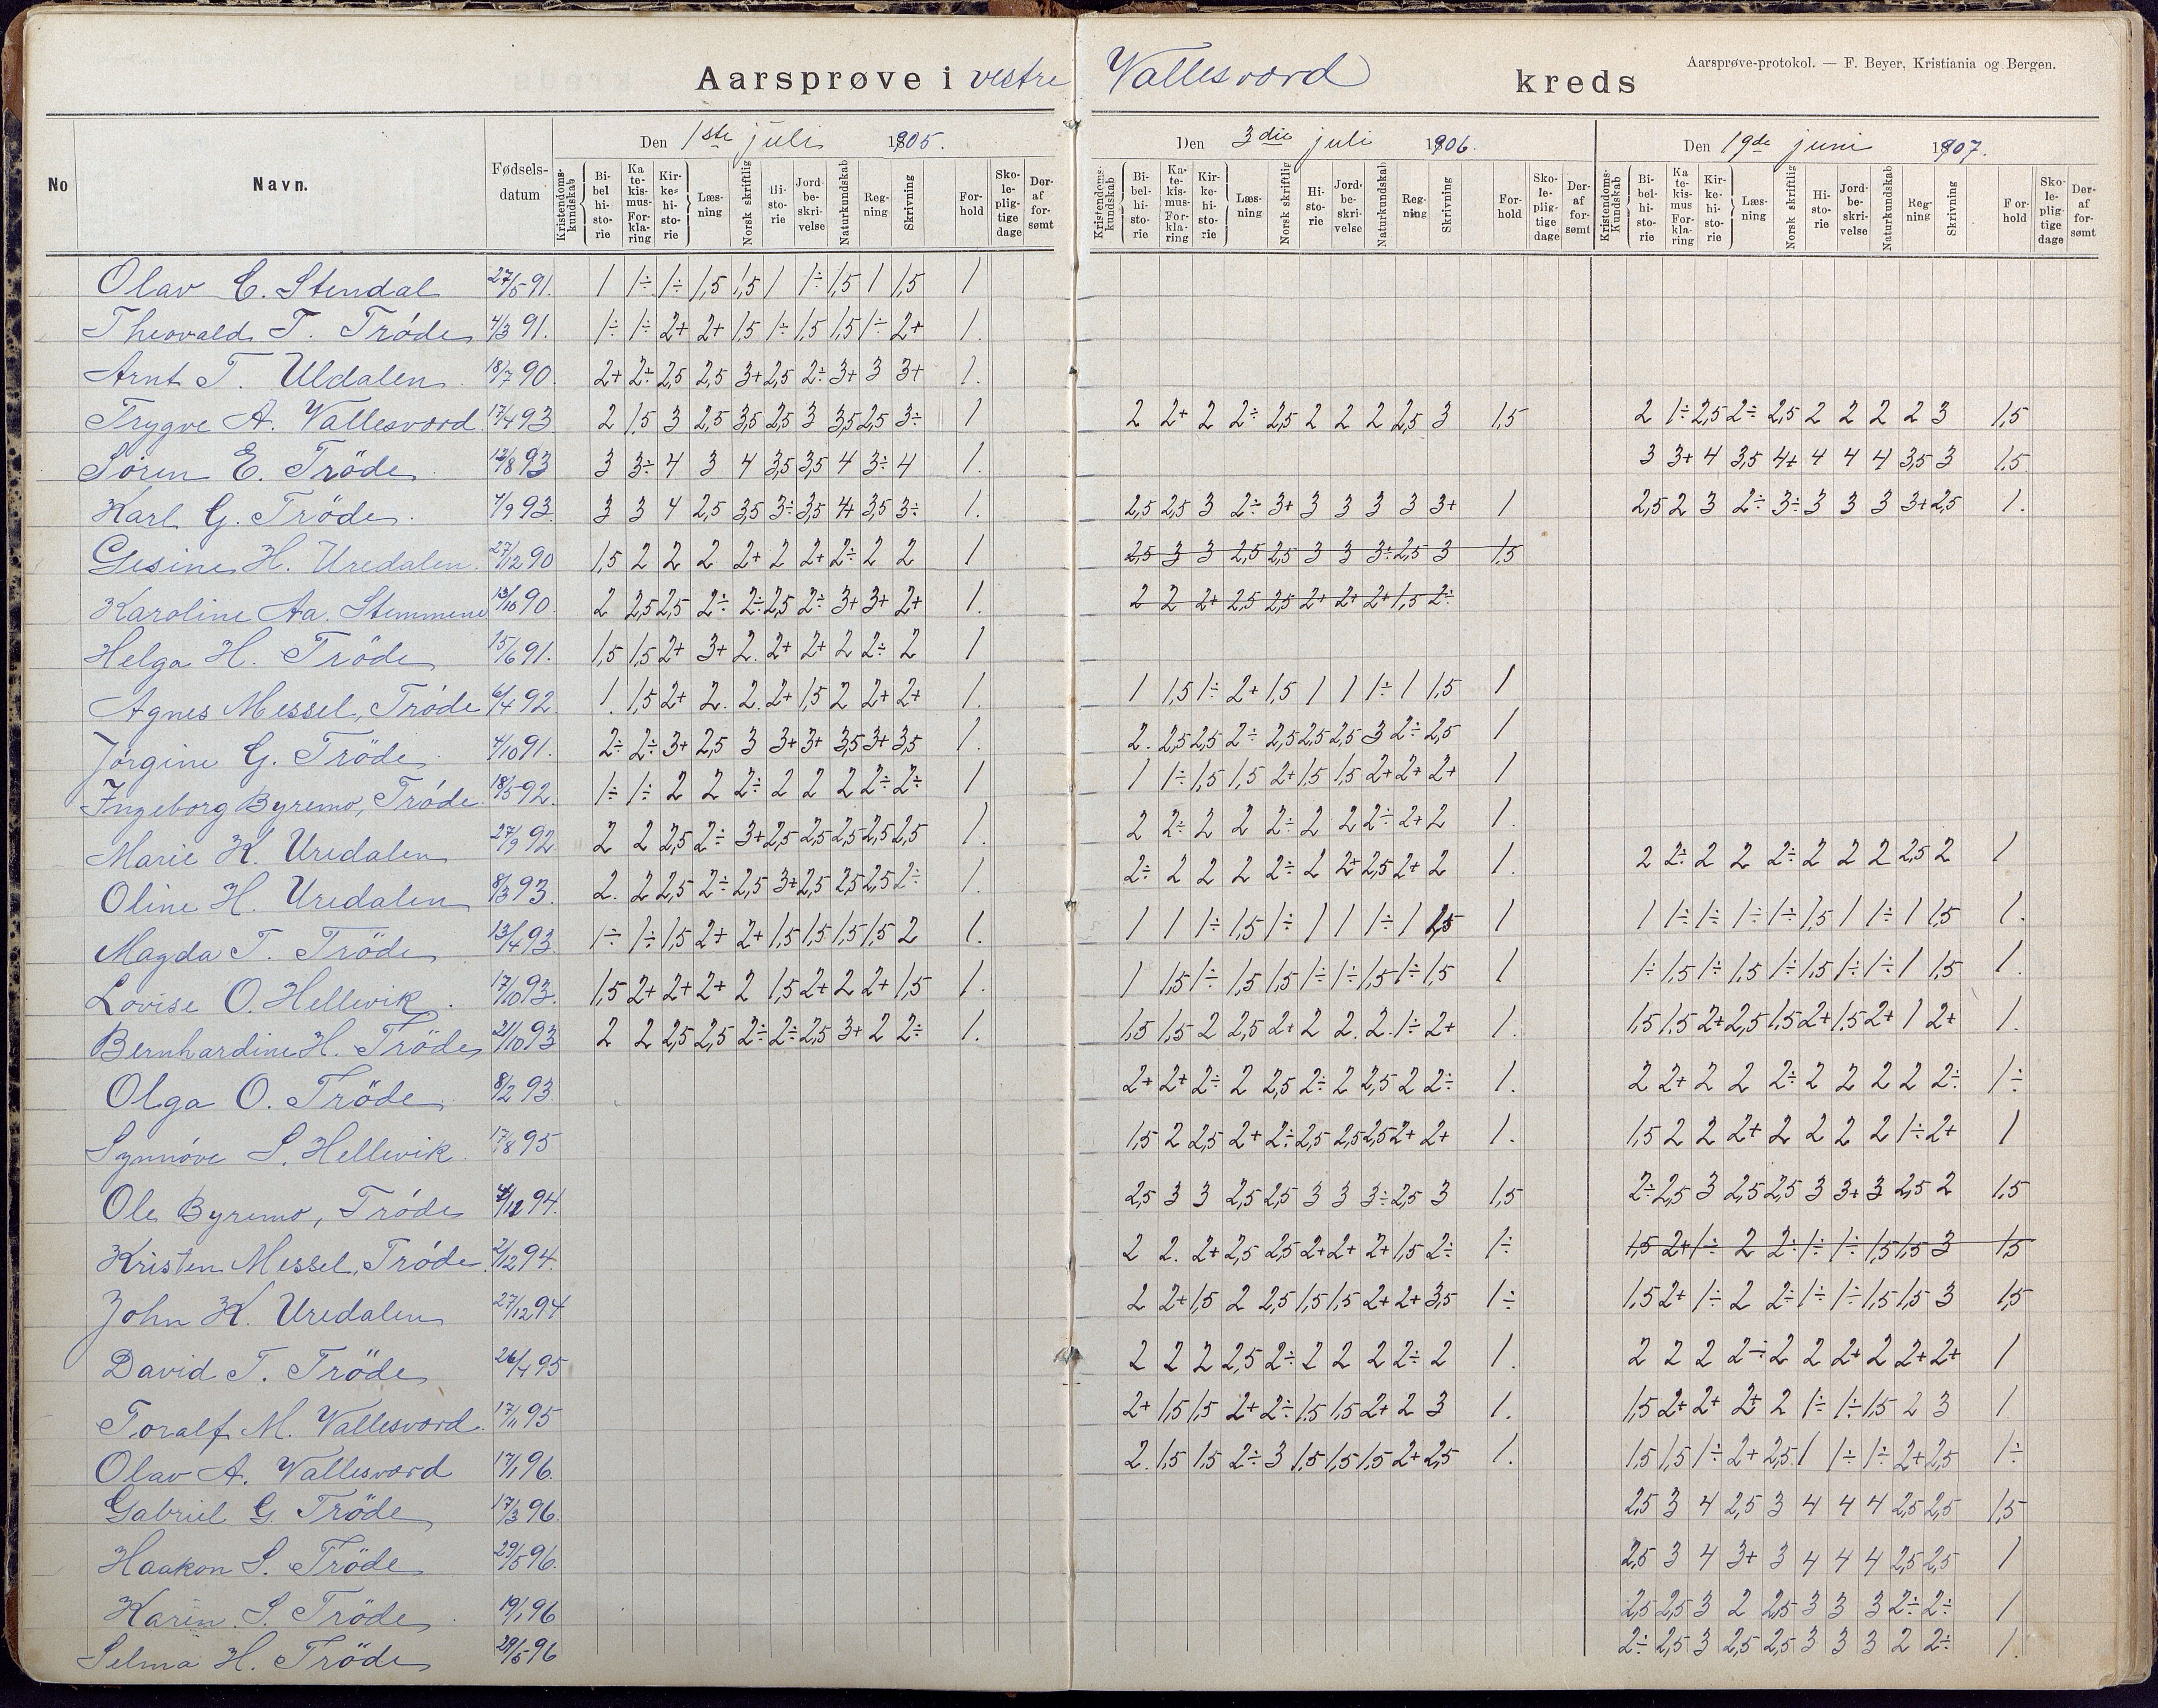 Aarsprøve i vestre Vallesværd kreds
Aarsprøve-protokol. — F. Beyer, Kristiania og Bergen.
No | Navn. | Fødsels-datum | Den 1ste juli 1905. | Den 3die juli 1906. | Den 19de juni 1907.
Kristendoms-kundskab { Bibelhistorie | Katekismus-Forklaring | Kirkehistorie | Læsning | Norsk skriftlig | Historie | Jordbeskrivelse | Naturkundskab | Regning | Skrivning | Forhold | Skolepligtige dage | Deraf forsømt
Kristendoms-kundskab { Bibelhistorie | Katekismus-Forklaring | Kirkehistorie | Læsning | Norsk skriftlig | Historie | Jordbeskrivelse | Naturkundskab | Regning | Skrivning | Forhold | Skolepligtige dage | Deraf forsømt
Kristendoms-Kundskab { Bibelhistorie | Katekismus Forklaring | Kirkehistorie | Læsning | Norsk skriftlig | Historie | Jordbeskrivelse | Naturkundskab | Regning | Skrivning | Forhold | Skolepligtige dage | Deraf forsømt
Olav C. Stendal 27/5 91. 1 1÷ 1÷ 1,5 1,5 1 1÷ 1,5 1 1,5 1
Theovald T. Trøde 4/3 91. 1÷ 1÷ 2+ 2+ 1,5 1÷ 1,5 1,5 1÷ 2+ 1.
Arnt T. Uldalen 18/7 90. 2+ 2÷ 2,5 2,5 3+ 2,5 2÷ 3+ 3 3+ 1.
Trygve A. Vallesværd 17/4 93 2 1,5 3 2,5 3,5 2,5 3 3,5 2,5 3÷ 1 | 2 2+ 2 2÷ 2,5 2 2 2 2,5 3 1,5 | 2 1÷ 2,5 2÷ 2,5 2 2 2 2 3 1,5
Sören E. Tröde 12/8 93 3 3÷ 4 3 4 3,5 3,5 4 3÷ 4 1. | 3 3+ 4 3,5 4+ 4 4 4 3,5 3 1,5
Karl G. Tröde 7/9 93. 3 3 4 2,5 3,5 3÷ 3,5 4+ 3,5 3÷ 1. | 2,5 2,5 3 2÷ 3+ 3 3 3 3 3+ 1 | 2,5 2 3 2÷ 3÷ 3 3 3 3+ 2,5 1.
Gesine H. Uredalen 27/12 90 1,5 2 2 2 2+ 2 2+ 2÷ 2 2 1 | 2,5 3 3 2,5 2,5 3 3 3÷ 2,5 3 1,5
Karoline Aa. Stemmene 13/10 90. 2 2,5 2,5 2÷ 2÷ 2,5 2÷ 3+ 3+ 2+ 1. | 2 2 2+ 2,5 2,5 2+ 2+ 2+ 1,5 2÷
Helga H. Tröde 15/6 91. 1,5 1,5 2+ 3+ 2. 2+ 2+ 2 2÷ 2 1
Agnes Messel, Tröde 6/4 92. 1. 1,5 2+ 2. 2. 2+ 1,5 2 2+ 2+ 1. | 1 1,5 1÷ 2+ 1,5 1 1 1÷ 1 1,5 1
Jörgine G. Tröde 4/10 91. 2÷ 2÷ 3+ 2,5 3 3+ 3+ 3,5 3+ 3,5 1. | 2. 2,5 2,5 2÷ 2,5 2,5 2,5 3 2÷ 2,5 1
Ingeborg Byremo, Tröde 18/5 92. 1÷ 1÷ 2 2 2÷ 2 2 2 2÷ 2÷ 1 | 1 1÷ 1,5 1,5 2+ 1,5 1,5 2+ 2+ 2+ 1
Marie K. Uredalen 27/9 92 2 2 2,5 2÷ 3+ 2,5 2,5 2,5 2,5 2,5 1. | 2 2÷ 2 2 2÷ 2 2 2÷ 2+ 2 1.
Oline H. Uredalen 8/3 93. 2. 2 2,5 2÷ 2,5 3+ 2,5 2,5 2,5 2÷ 1. | 2÷ 2 2 2 2÷ 2 2+ 2,5 2+ 2 1. | 2 2÷ 2 2 2÷ 2 2 2 2,5 2 1
Magda T. Tröde 13/4 93. 1÷ 1÷ 1,5 2+ 2+ 1,5 1,5 1,5 1,5 2 1. | 1 1 1÷ 1,5 1÷ 1 1 1÷ 1 1,5 1 | 1 1÷ 1÷ 1÷ 1÷ 1,5 1 1÷ 1 1,5 1.
Lovise O. Hellevik 17/10 93. 1,5 2+ 2+ 2+ 2 1,5 2+ 2 2+ 1,5 1. | 1 1,5 1÷ 1,5 1,5 1÷ 1÷ 1,5 1÷ 1,5 1 | 1÷ 1,5 1÷ 1,5 1÷ 1,5 1÷ 1÷ 1 1,5 1.
Bernhardine H. Tröde 21/10 93 2 2 2,5 2,5 2÷ 2÷ 2,5 3+ 2 2÷ 1. | 1,5 1,5 2 2,5 2+ 2 2. 2. 1÷ 2+ 1. | 1,5 1,5 2+ 2,5 1,5 2+ 1,5 2+ 1 2+ 1.
Olga O. Tröde 8/2 93. | 2+ 2+ 2÷ 2 2,5 2÷ 2 2,5 2 2÷ 1. | 2 2+ 2 2 2÷ 2 2 2 2 2÷ 1÷
Synnöve S. Hellevik 17/8 95 | 1,5 2 2,5 2+ 2÷ 2,5 2,5 2,5 2+ 2+ 1. | 1,5 2 2 2+ 2 2 2 2 1÷ 2+ 1
Ole Byremo, Tröde 4/12 94. | 2,5 3 3 2,5 2,5 3 3 3÷ 2,5 3 1,5 | 2÷ 2,5 3 2,5 2,5 3 3+ 3 2,5 2 1,5
Kristen Messel, Tröde 2/12 94. | 2 2. 2+ 2,5 2,5 2+ 2+ 2+ 1,5 2÷ 1÷ | 1,5 2+ 1÷ 2 2÷ 1÷ 1÷ 1,5 1,5 3 1,5
John K. Uredalen 27/12 94 | 2 2+ 1,5 2 2,5 1,5 1,5 2+ 2+ 3,5 1÷ | 1,5 2+ 1÷ 2 2÷ 1÷ 1÷ 1,5 1,5 3 1,5
David T. Tröde 26/4 95 | 2 2 2 2,5 2÷ 2 2 2 2÷ 2 1. | 2 2 2 2÷ 2 2 2+ 2 2+ 2+ 1
Toralf M. Vallesværd 17/11 95 | 2+ 1,5 1,5 2+ 2÷ 1,5 1,5 2+ 2 3 1. | 1,5 2+ 2+ 2+ 2 1÷ 1÷ 1,5 2 3 1
Olav A. Vallesværd 17/1 96. | 2. 1,5 1,5 2÷ 3 1,5 1,5 1,5 2+ 2,5 1. | 1,5 1,5 1÷ 2+ 2,5 1 1÷ 1÷ 2+ 2,5 1÷
Gabriel G. Tröde 17/3 96. | 2,5 3 4 2,5 3 4 4 4 2,5 2,5 1,5
Haakon S. Tröde 29/5 96. | 2,5 3 4 3+ 3 4 4 4 2,5 2,5 1
Karen S. Tröde 19/1 96 | 2,5 2,5 3 2 2,5 3 3 3 2÷ 2÷ 1
Selma H. Tröde 29/5 96 | 2÷ 2,5 3 2,5 2,5 3 3 3 2 2÷ 1.